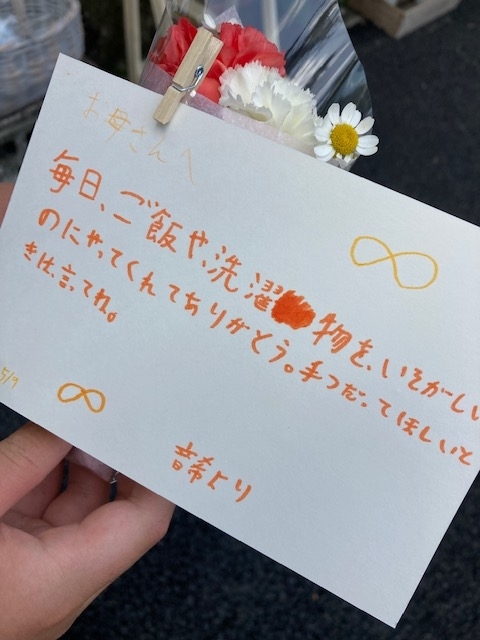 お母さんへ
毎日、ご飯や、洗濯物を、いそがしい
のにやってくれてありがとう。手つだってほしいと
きは、言ってね。
5/9
音希より